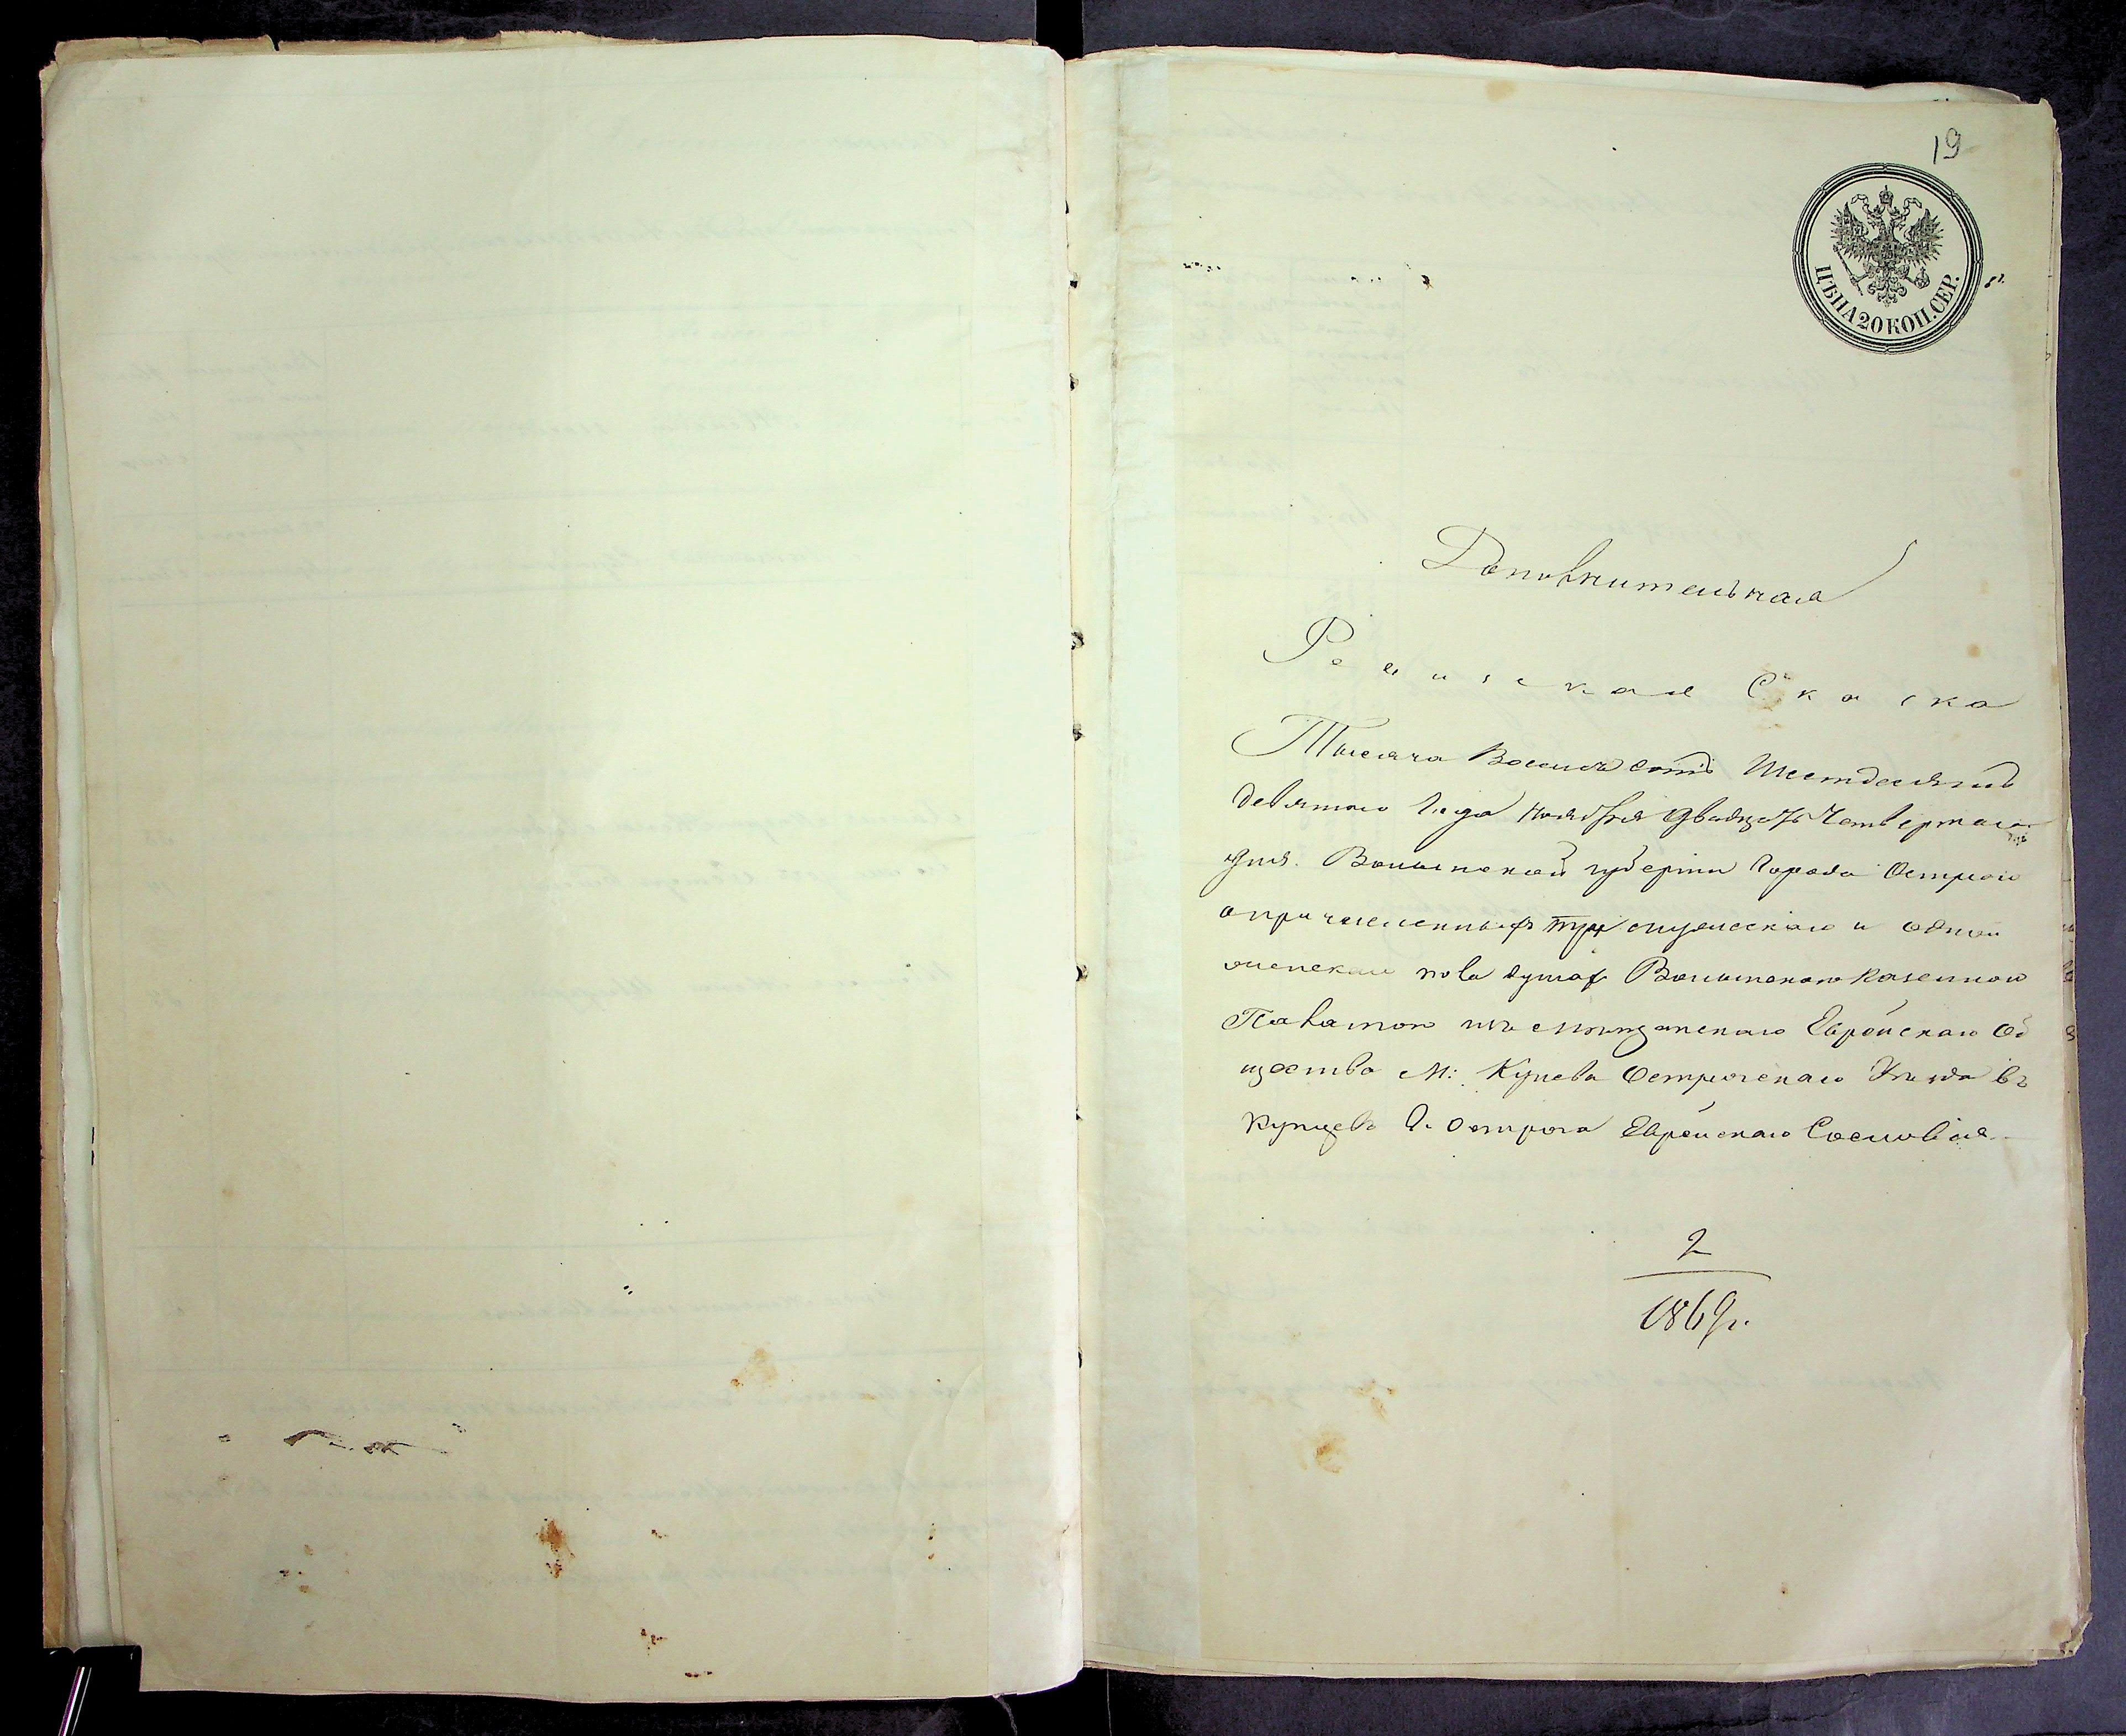 19
ЦѢНА 20 КОП. СЕР.
Дополнительная
Ревизская Сказка
Тысяча Восемьсотъ Шестдесятъ
девятого Года Ноября двадцать Четвертаго
дня. Волынской губерніи Города Острога
о причисленныхъ мужескаго и одной
женскаго пола душахъ Волынскою Казенною
Палатою изъ Еврейскаго Об
щества М: Кунева Острожскаго Уѣзда въ
купцевъ Г. Острога Еврейскаго Сословія
2
1869 г.